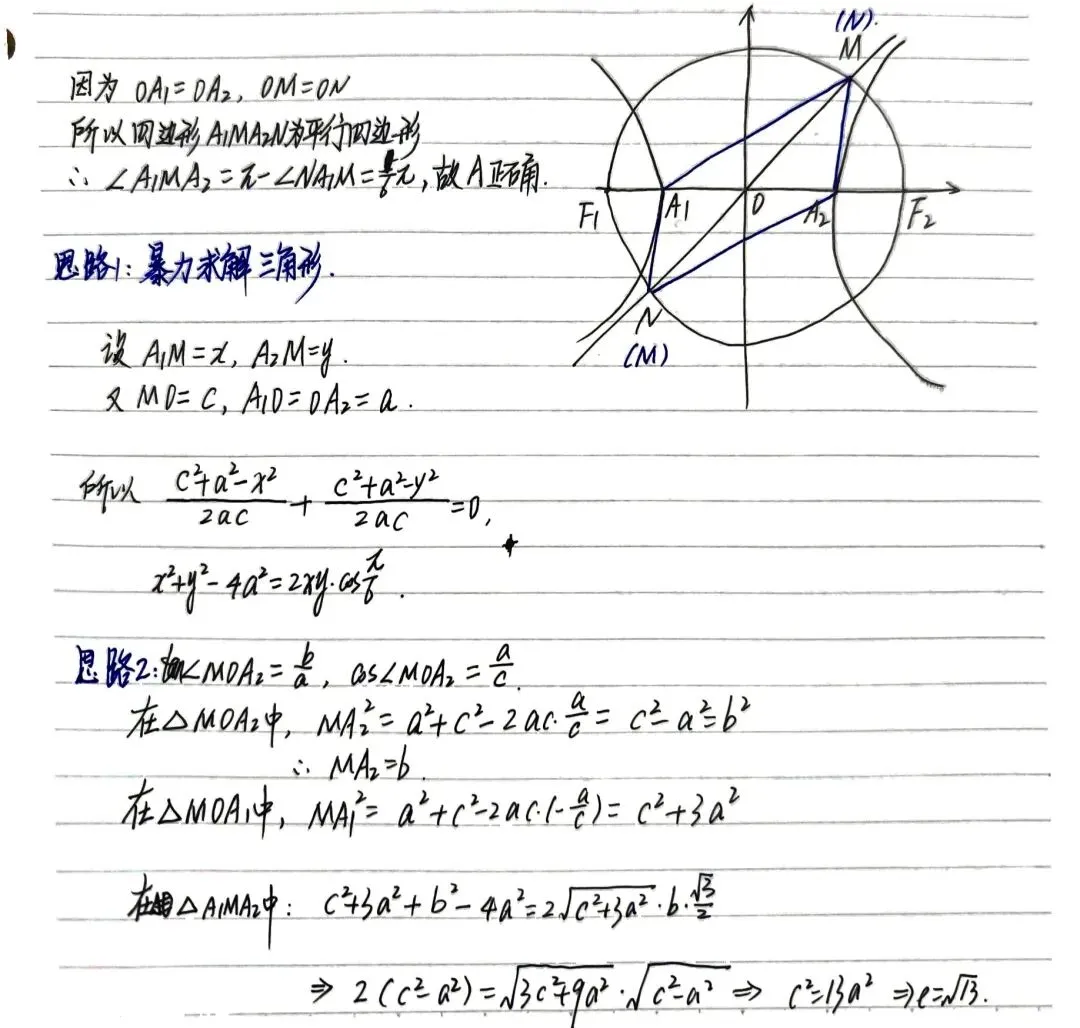 因为 OA₁=OA₂, OM=ON
所以四边形A₁MA₂N为平行四边形
∴ ∠A₁MA₂=π-∠NA₁M=π/6, 故A正确.
(N).
M
F₁
A₁
O
A₂
F₂
N
(M)
思路1: 暴力求解三角形.
设 A₁M=x, A₂M=y.
又 MO=c, A₁O=OA₂=a.
所以 (c²+a²-x²)/(2ac) + (c²+a²-y²)/(2ac) =0,
x²+y²-4a²=2xy·cos π/6.
思路2: tan∠MOA₂=b/a, cos∠MOA₂=a/c.
在△MOA₂中, MA₂²=a²+c²-2ac·a/c=c²-a²=b²
∴ MA₂=b.
在△MOA₁中, MA₁²=a²+c²-2ac·(-a/c)=c²+3a²
在△A₁MA₂中: c²+3a²+b²-4a²=2√(c²+3a²)·b·√3/2
⇒ 2(c²-a²)=√(3c²+9a²)·√(c²-a²) ⇒ c²=13a² ⇒e=√13.